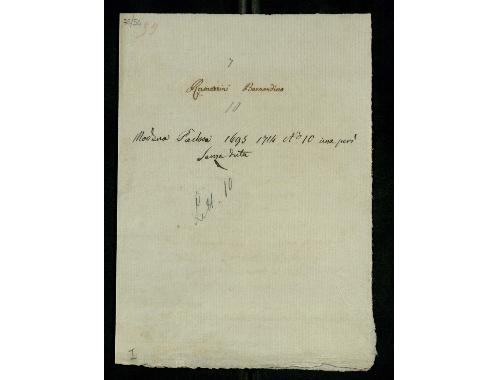 7
Ramazzini Bernardino
10
Modena Padova 1695 1714 N.o 10 una però
Senza data
Lett. 10
I